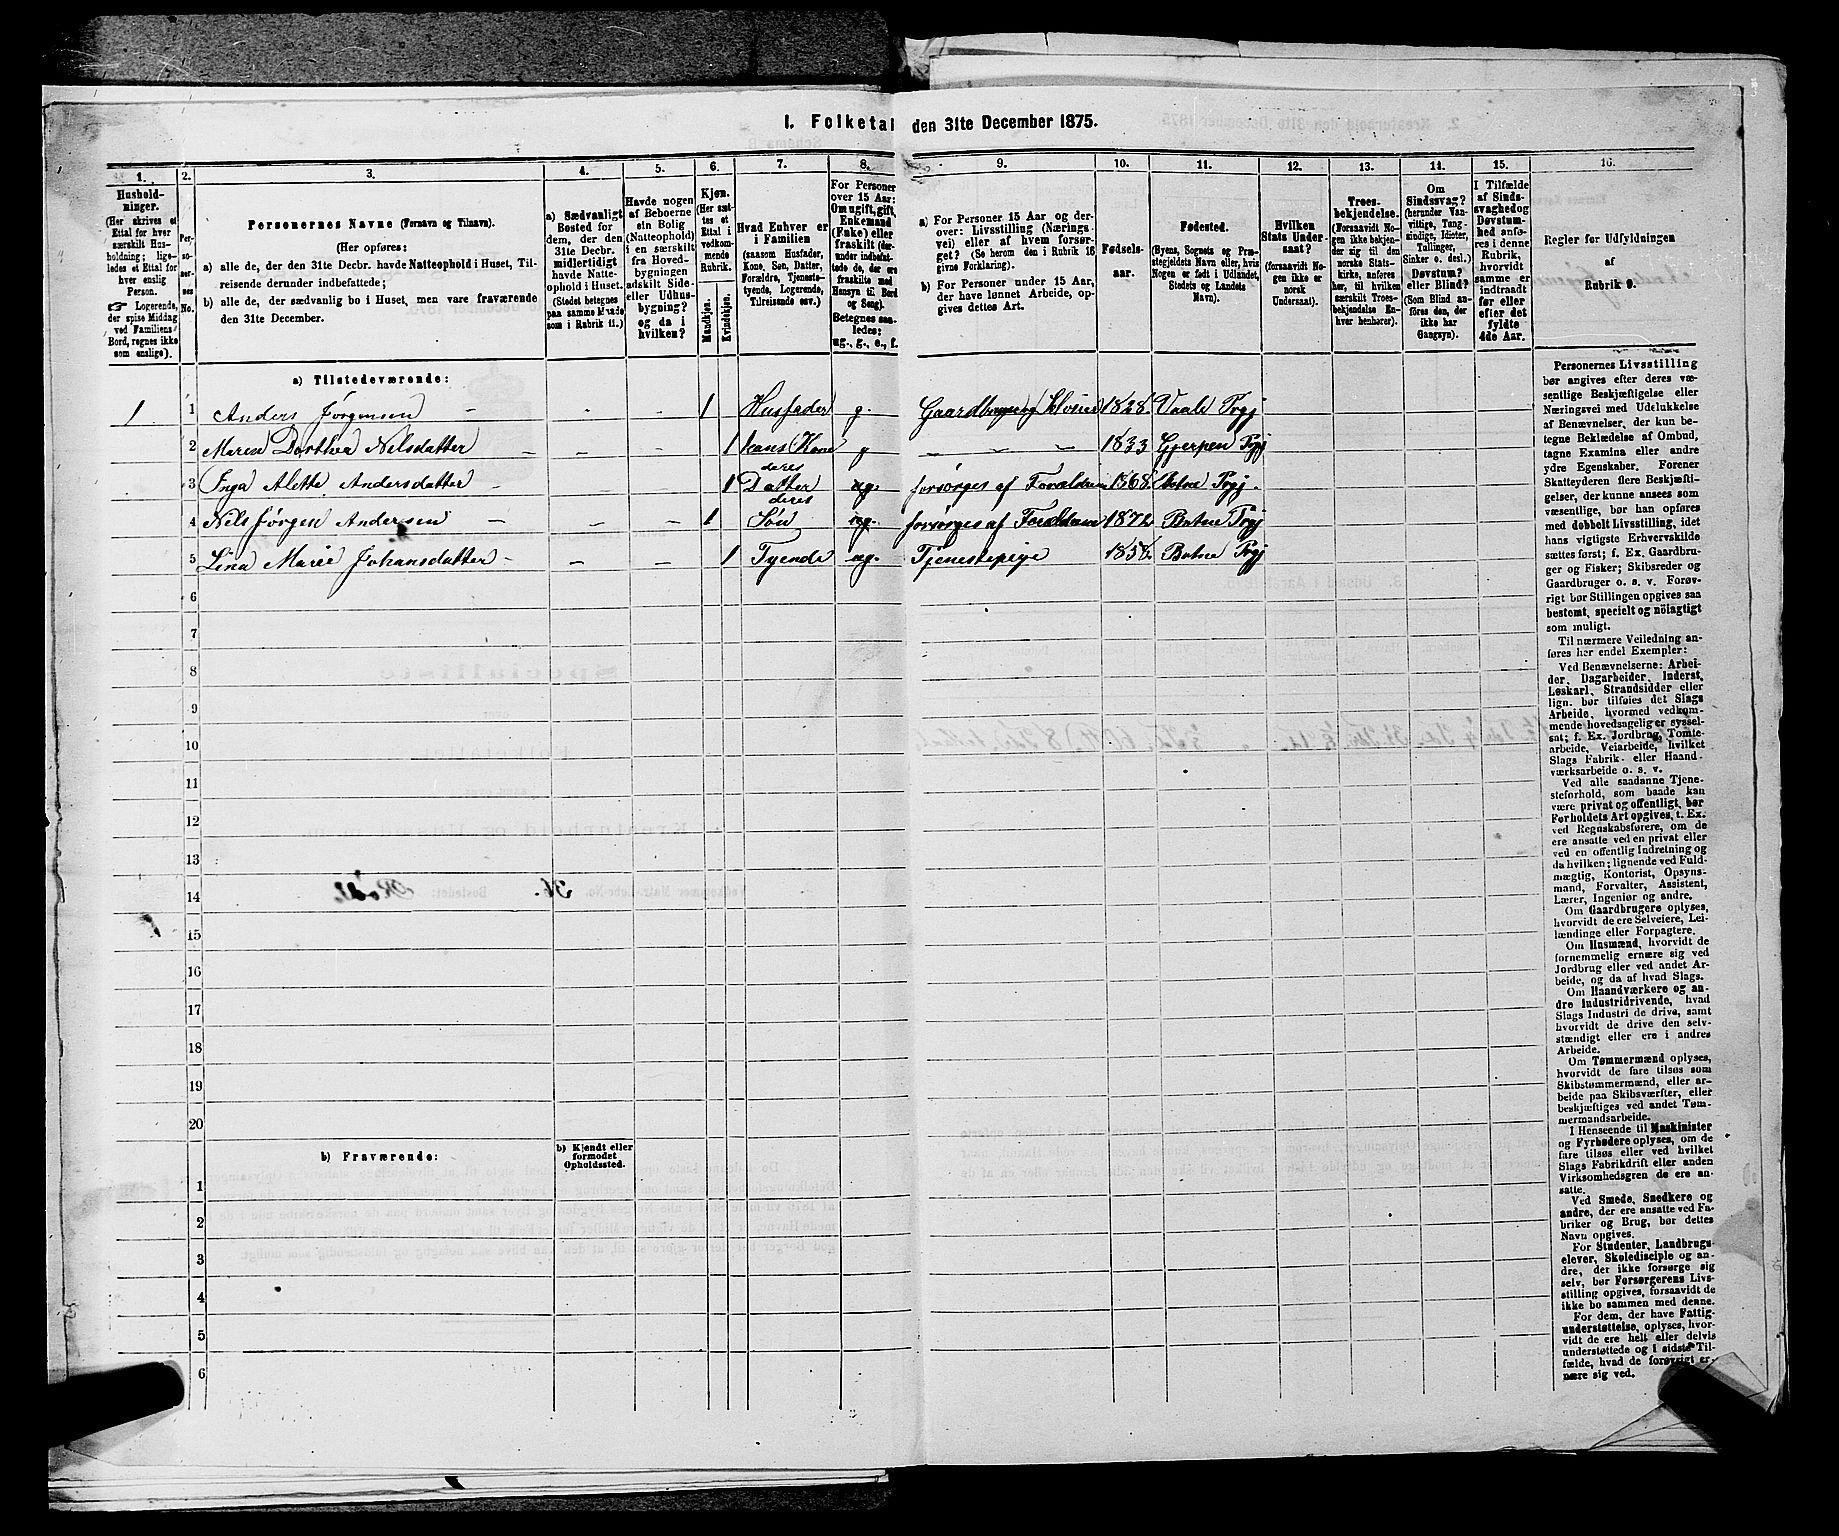 I. Folketal den 31te December 1875.
1.
2.
3.
4.
5.
6.
7.
8.
9.
10.
11.
12.
13.
14.
15.
16.
Hushold-
ninger.
(Her skrives et
Ettal for hver
særskilt Hus-
holdning; lige-
ledes et Ettal for
hver enslig
Person.
☞ Logerende,
der spise Middag
ved Familiens
Bord, regnes ikke
som enslige).
Per-
so-
ner-
nes
No.
Personernes Navne (Fornavn og Tilnavn).
(Her opføres:
a) alle de, der den 31te Decbr. havde Natteophold i Huset, Til-
reisende derunder indbefattede;
b) alle de, der sædvanlig bo i Huset, men vare fraværende
den 31te December.
a) Sædvanligt
Bosted for
dem, der den
31te Decbr.
midlertidigt
havde Natte-
ophold i Huset.
(Stedet betegnes
paa samme Maade
som i Rubrik 11.)
Havde nogen
af Beboerne
sin Bolig
(Natteophold)
i en særskilt
fra Hoved-
bygningen
adskilt Side-
eller Udhus-
bygning?
og da i
hvilken?
Kjøn.
(Her sæt-
tes et
Ettal i
vedkom-
mende
Rubrik.
Mandkjøn.
Kvindekjøn.
Hvad Enhver er
i Familien
(saasom Husfader,
Kone, Søn, Datter,
Forældre, Tjeneste-
tyende, Logerende,
Tilreisende osv.)
For Personer
over 15 Aar:
Om ugift, gift,
Enkemand
(Enke) eller
fraskilt (der-
under indbefat-
tede de, der ere
fraskilte med
Hensyn til Bord
og Seng).
Betegnes saa-
ledes:
ug., g., e., f.
a) For Personer 15 Aar og der-
over: Livsstilling (Nærings-
vei) eller af hvem forsør-
get? (Se herom den i Rubrik 16
givne Forklaring).
b) For Personer under 15 Aar,
der have lønnet Arbeide, op-
gives dettes Art.
Fødsels-
aar.
Fødested.
(Byens, Sognets og Præ-
stegjeldets Navn eller, hvis
Nogen er født i Udlandet,
Stedets og Landets
Navn).
Hvilken
Stats Under-
saat?
(forsaavidt No-
gen ikke er
norsk
Undersaat).
Troes-
bekjendelse.
(Forsaavidt No-
gen ikke bekjen-
der sig til den
norske Stats-
kirke, anføres
her, til hvilken
særskilt Troes-
bekjendelse En-
hver henhører).
Om
Sindssvag?
(herunder Van-
vittige, Tung-
sindige, Idioter,
Tullinger,
Sinker o. desl.)
Døvstum?
eller Blind?
(Som Blind an-
føres den, der
ikke har
Gangsyn).
I Tilfælde
af Sinds-
svaghed og
Døvstum-
hed anfø-
res i denne
Rubrik,
hvorvidt
samme er
indtraadt
før eller
efter det
fyldte
4de Aar.
Regler før Udfyldningen
af
Rubrik 9.
a) Tilstedeværende:
1 1 Anders Jørgensen - - - 1 Husfader g. Gaardbruger og 1828 Vaale Prgj
2 Maren Dorthea Nilsdatter - - - 1 hans Kone g - - - 1833 Gjerpen Prgj
3 Inga Alette Andersdatter - - - 1 deres Datter ug. forsørges af Forældrene 1868 Botne Prgj.
4 Nils Jørgen Andersen - - - 1 deres Søn ug. forsørges af Forældrene 1872 Botne Prgj
5 Lina Marie Johansdatter - - - 1 Tyende ug. Tjenestepige 1858 Botne Prgj
6
7
8
9
10
11
12
13
14
15
16
17
18
19
20
b) Fraværende:
b) Kjendt eller
formodet
Opholdssted.
1
2
3
4
5
6
Personernes Livsstilling
bør angives efter deres væ-
sentlige Beskjæftigelse eller
Næringsvei med Udelukkelse
af Benævnelser, der kun be-
tegne Beklædelse af Ombud,
tagne Examina eller andre
ydre Egenskaber. Forener
Skatteyderen flere Beskjæfti-
gelser, der kunne ansees som
væsentlige, bør han opføres
med dobbelt Livsstilling, idet
hans vigtigste Erhvervskilde
sættes først; f. Ex. Gaardbru-
ger og Fisker; Skibsreder og
Gaardbruger o. s. v. Forøv-
rigt bør Stillingen opgives saa
bestemt, specielt og nøiagtigt
som muligt.
Til nærmere Veiledning an-
føres her endel Exempler:
Ved Benævnelserne: Arbei-
der, Dagarbeider, Inderst,
Løskarl, Strandsidder eller
lign. bør tilføies det Slags
Arbeide, hvormed vedkom-
mende hovedsagelig er syssel-
sat; f. Ex. Jordbrug, Tomte-
arbeide, Veiarbeide, hvilket
Slags Fabrik- eller Haand-
værksarbeide o. s. v.
Ved alle saadanne Tjene-
steforhold, som baade kan
være privat og offentligt, bør
Forholdets Art opgives, t. Ex.
ved Regnskabsførere, om de
ere ansatte ved en privat eller
ved en offentlig Indretning og
da hvilken; lignende ved Fuld-
mægtig, Kontorist, Opsyns-
mand, Forvalter, Assistent,
Lærer, Ingeniør og andre.
Om Gaardbrugere oplyses,
hvorvidt de ere Selveiere, Lei-
lændinge eller Forpagtere.
Om Husmænd, hvorvidt de
fornemmelig ernære sig ved
Jordbrug eller ved andet Ar-
beide, og da af hvad Slags.
Om Haandværkere og an-
dre Industridrivende, hvad
Slags Industri de drive, samt
hvorvidt de drive den selv-
stændigt eller ere i andres
Arbeide.
Om Tømmermænd oplyses,
hvorvidt de fare tilsøs som
Skibstømmermænd, eller ar-
beide paa Skibsværfter, eller
beskjæftiges ved andet Tøm-
mermandsarbeide.
I Henseende til Maskinister
og Fyrbødere oplyses, om de
fare tilsøs eller ved hvilket
Slags Fabrikdrift eller anden
Virksomhedsgren de ere an-
satte.
Ved Smede, Snedkere og
andre, der ere ansatte ved Fa-
briker og Brug, bør dettes
Navn opgives.
For Studenter, Landbrugs-
elever, Skoledisciple og an-
dre, der ikke forsørge sig
selv, bør Forsørgerens Livs-
stilling opgives, forsaavidt de
ikke bo sammen med denne.
For dem, der have Fattig-
understøttelse, oplyses, hvor-
vidt de ere helt eller delvis
understøttede og i sidste Til-
fælde, hvad de forøvrigt er-
nære sig ved.